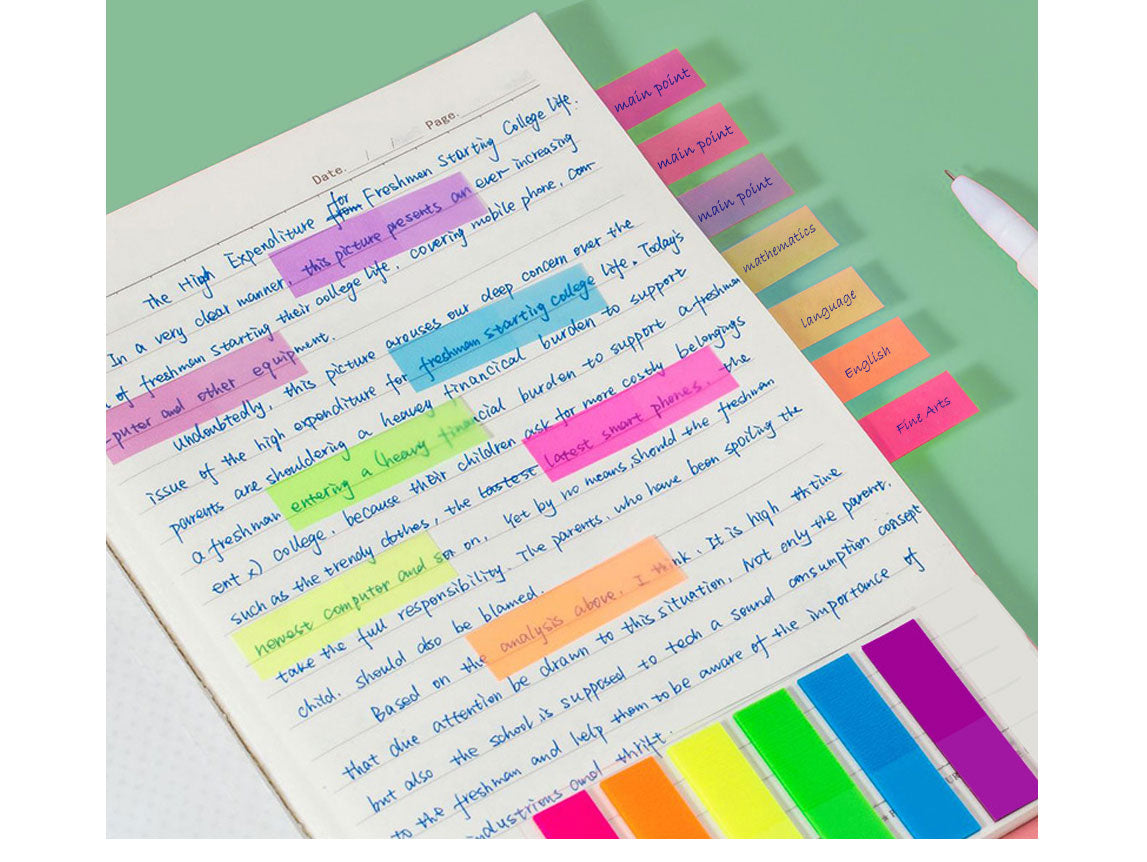 Date. / / Page.
The High Expenditure for from Freshmen Starting College life.
In a very clear manner, this picture presents an ever increasing
of freshman starting their college life, covering mobile phone, com-
-puter and other equipment.
Undoubtedly, this picture arouses our deep concern over the
issue of the high expenditure for freshman starting college life. Today's
parents are shouldering a heavy financial burden to support
a freshman entering a (heavy financial burden to support a freshman
ent x) college, because their children ask for more costly belongings
such as the trendy clothes, the lastest latest smart phones, the
newest computor and so on. Yet by no means should the freshman
take the full responsibility. The parents, who have been spoiling the
child, should also be blamed.
Based on the analysis above, I think, It is high thtime
that due attention be drawn to this situation, Not only the parent,
but also the school is supposed to tech a sound consumption consept
to the freshman and help them to be aware of the importance of
industrious and thrift.
main point
main point
main point
mathematics
language
English
Fine Arts